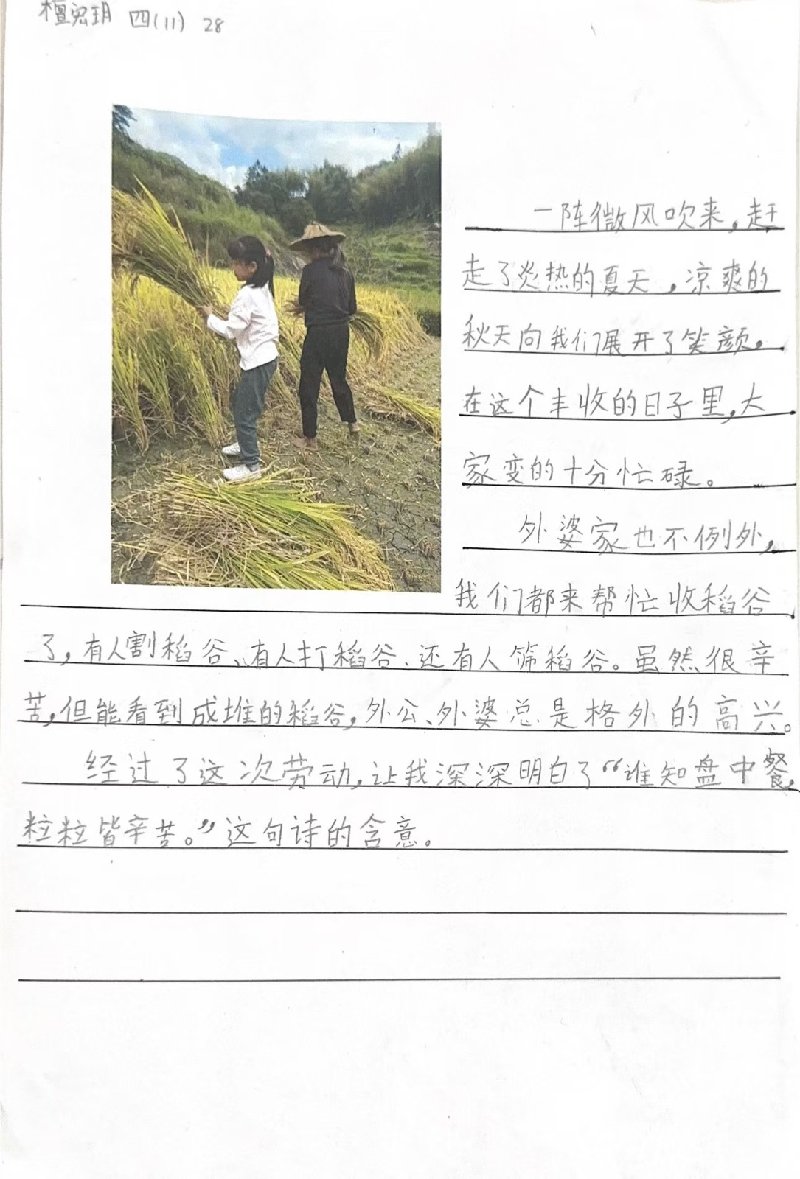 檀宏玥 四(11) 28
一阵微风吹来,赶
走了炎热的夏天,凉爽的
秋天向我们展开了笑颜。
在这个丰收的日子里,大
家变的十分忙碌。
外婆家也不例外,
我们都来帮忙收稻谷
了,有人割稻谷、有人打稻谷、还有人筛稻谷。虽然很辛
苦,但能看到成堆的稻谷,外公、外婆总是格外的高兴。
经过了这次劳动,让我深深明白了“谁知盘中餐,
粒粒皆辛苦。”这句诗的含意。